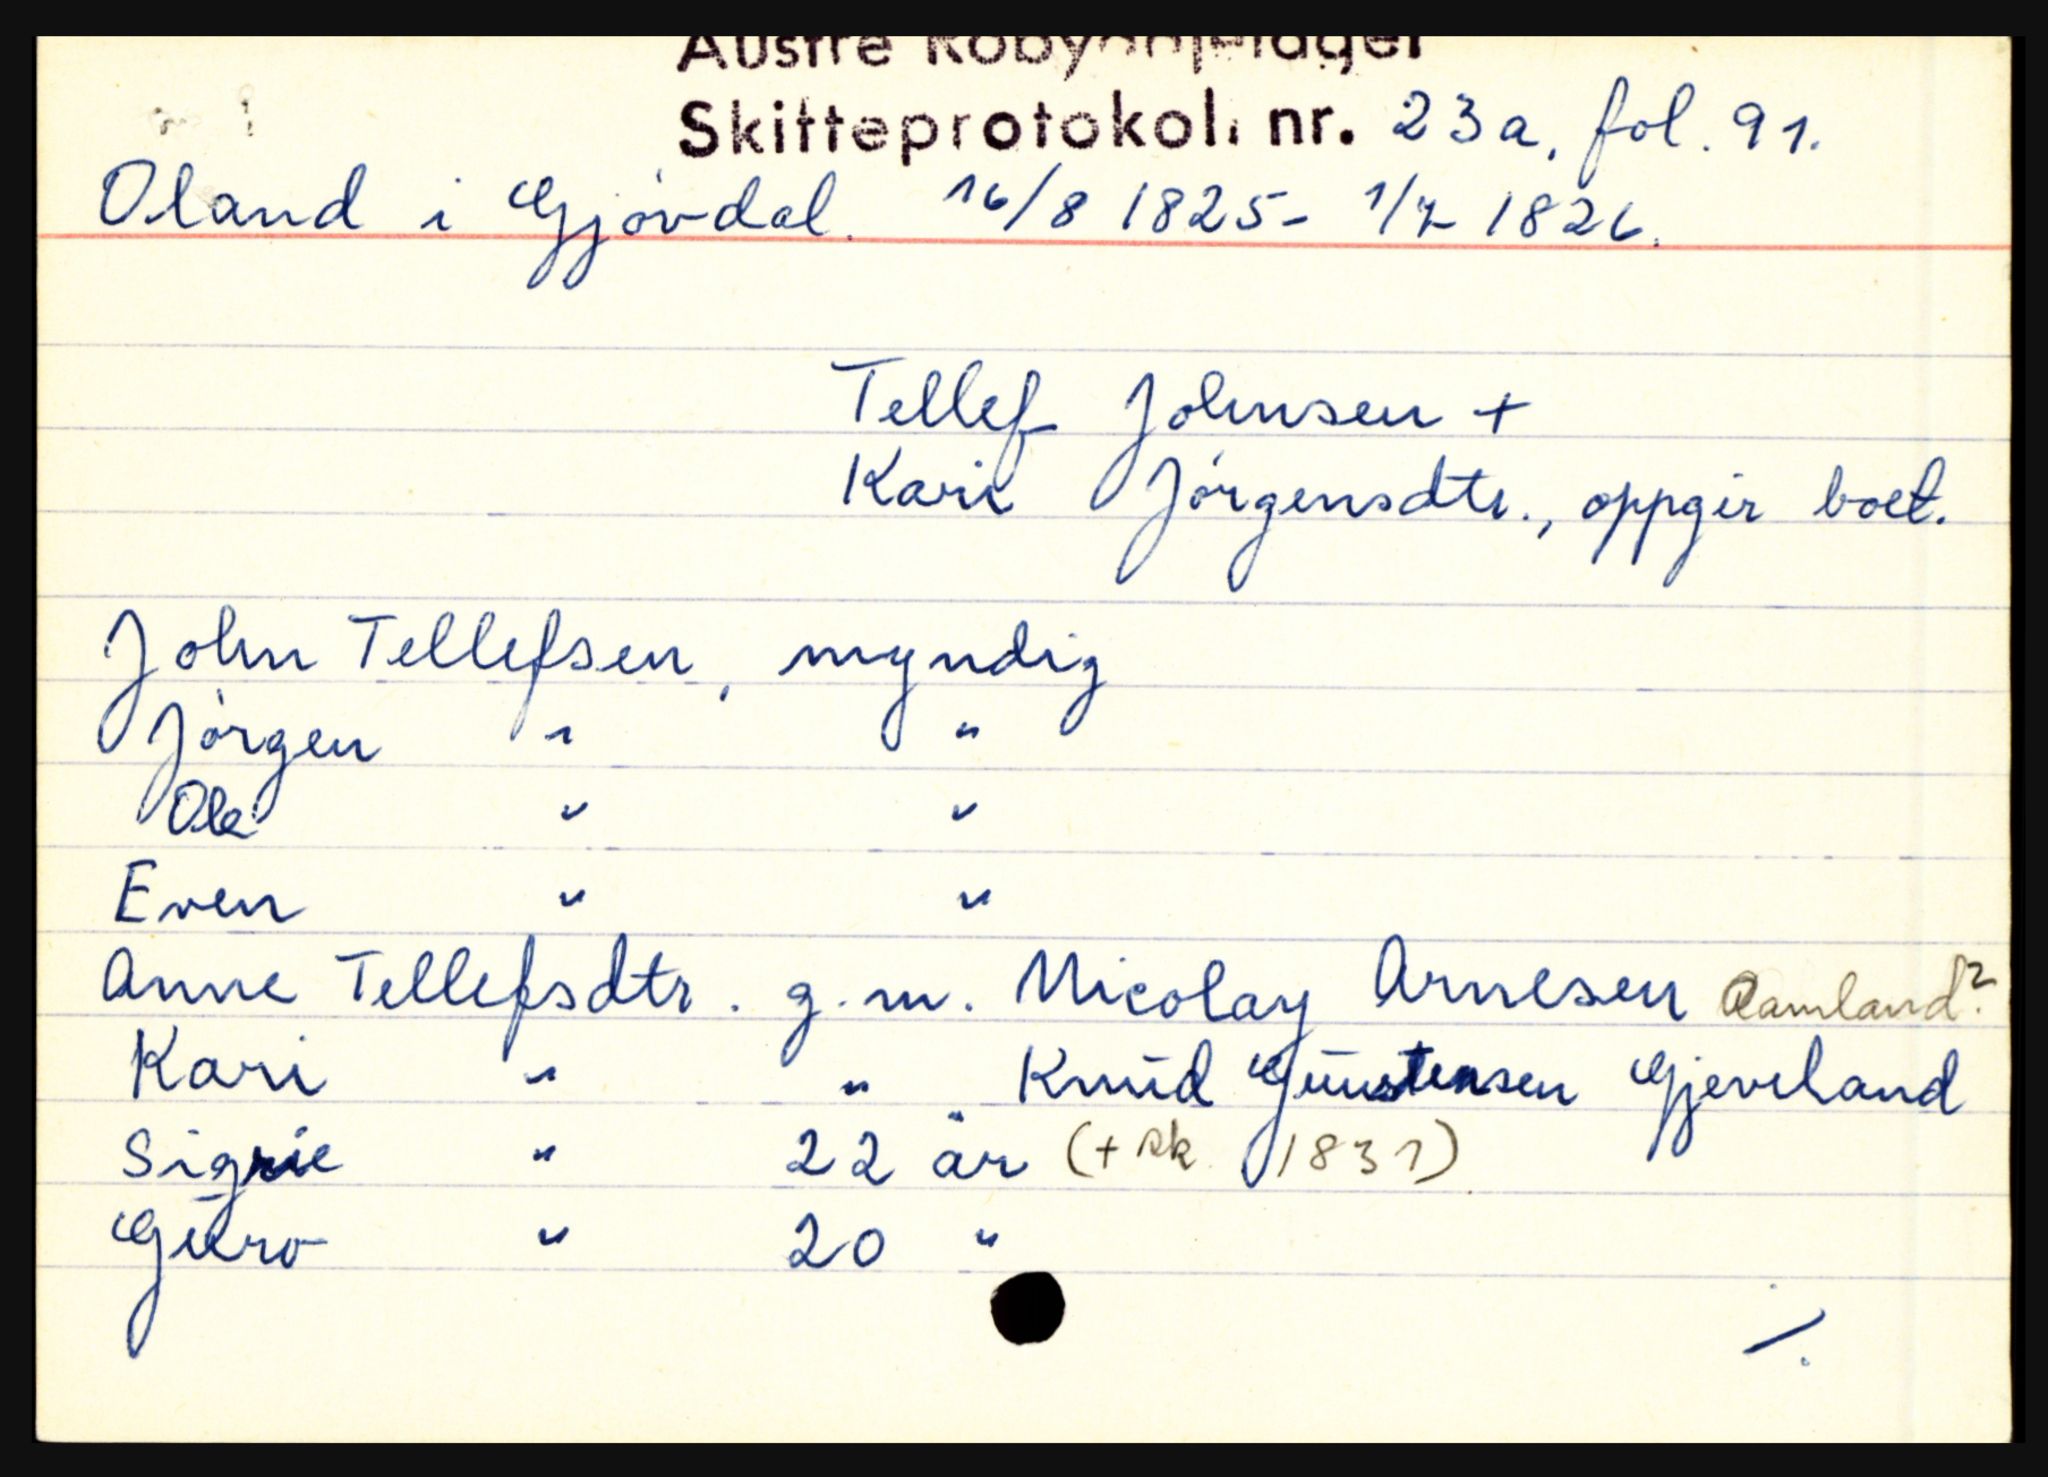 Austre Robyggjelaget
Skifteprotokoll nr. 23a, fol. 91.
Oland i Gjövdal. 16/8 1825- 1/7 1826.
Tellef Johnsen +
Kari Jörgensdtr., oppgir boet.
John Tellefsen, myndig
Jörgen " "
Ole " "
Even " "
Anne Tellefsdtr. g.m. Nicolay Arnesen Aamland?
Kari " " Knud Gunstensen Gjeveland
Sigrie " 22 år (+ sk. 1831)
Guro " 20 "
/.